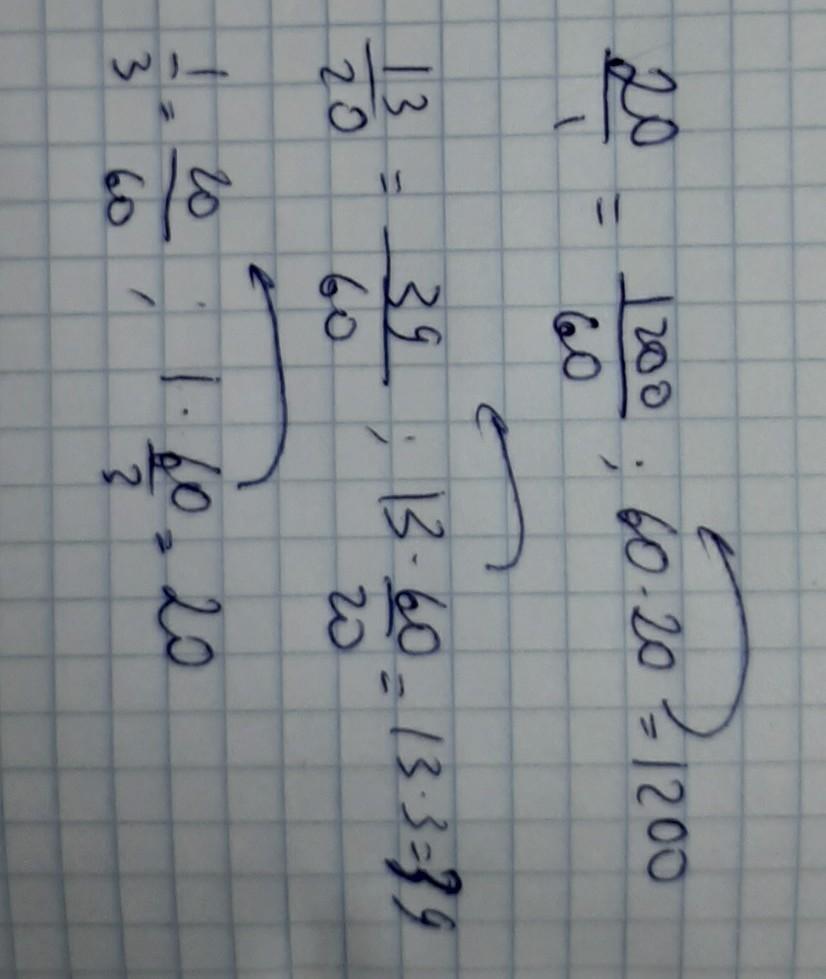 20/1 = 1200/60 ; 60 · 20 = 1200
13/20 = 39/60 ; 13 · 60/20 = 13 · 3 = 39
1/3 = 20/60 ; 1 · 60/3 = 20